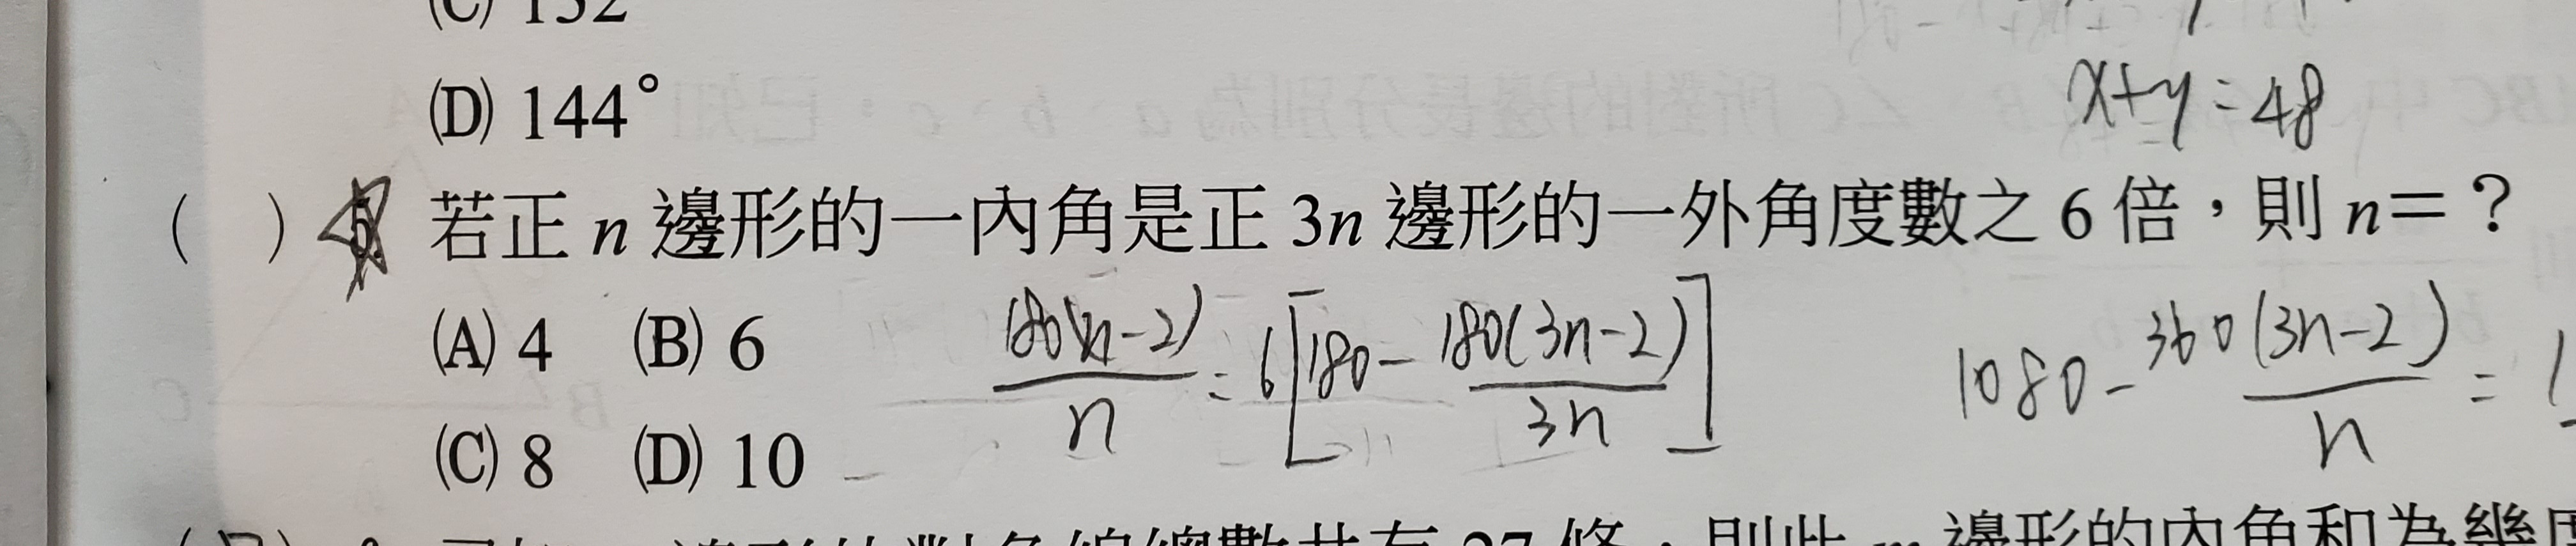 (D) 144°
x+y=48
(　) 若正 n 邊形的一內角是正 3n 邊形的一外角度數之 6 倍，則 n＝？
(A) 4　(B) 6
(C) 8　(D) 10
180(n-2)/n = 6[180 - 180(3n-2)/3n]
1080 - 360(3n-2)/n =